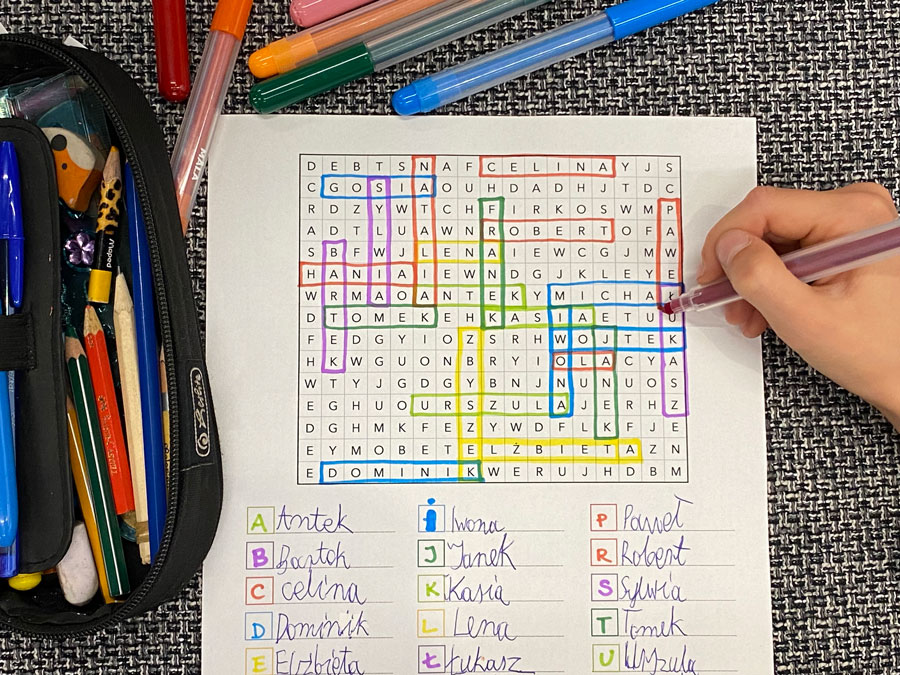 MALTA
Maped
Herlitz
D E B T S N A F C E L I N A Y J S
C G O S I A O U H D A D H J T D C
R D Z Y W T C H F I R K O S W M P
A D T L U A W N R O B E R T O F A
S B F W J L E N A I E W C G J M W
H A N I A I E W N D G J K L E Y E
W R M A O A N T E K Y M I C H A Ł
D T O M E K E H K A S I A E T U U
F E D G Y I O Z S R H W O J T E K
H K W G U O N B R Y I O L A C Y A
W T Y J G D G Y B N J N U N U O S
E G H U O U R S Z U L A J E R H Z
D G H M K F E Z Y W D F L K F J E
E Y M O B E T E L Ż B I E T A Z N
E D O M I N I K W E R U J H D B M
A Antek
B Bartek
C Celina
D Dominik
E Elżbieta
I Iwona
J Janek
K Kasia
L Lena
Ł Łukasz
P Paweł
R Robert
S Sylwia
T Tomek
U Urszula